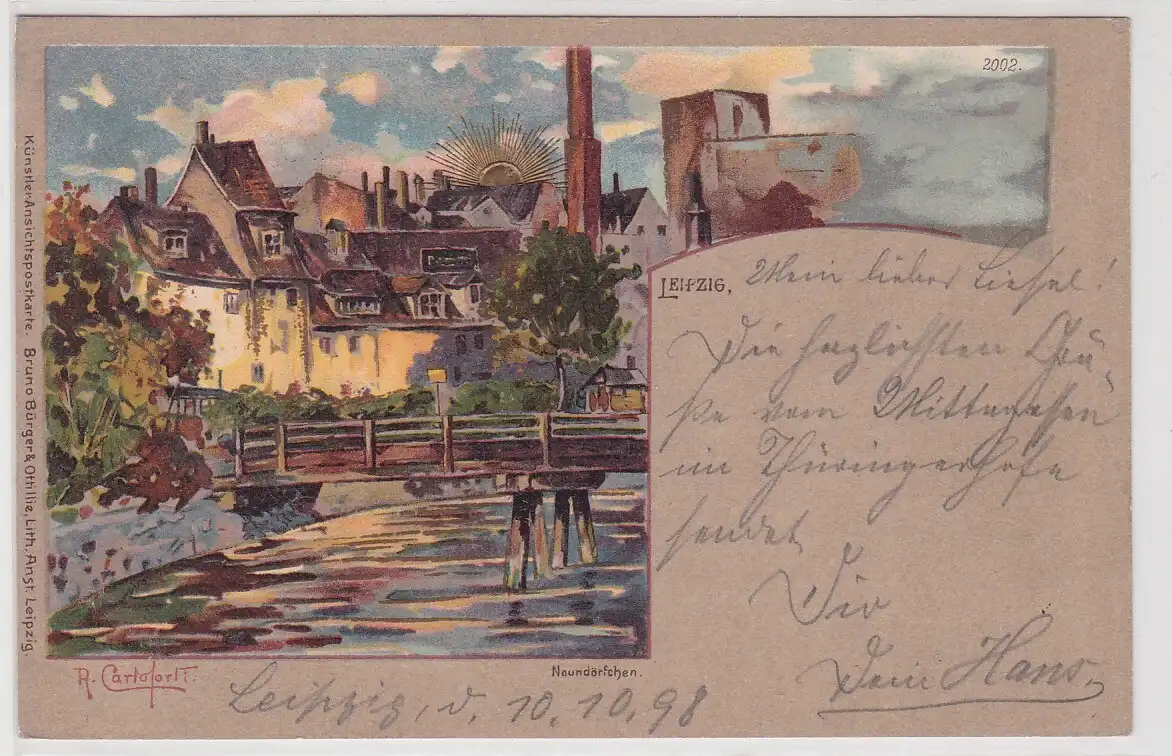 2002.
LEIPZIG, Mein lieber Liesel!
Die herzlichsten Grü-
ße vom Mittagessen
im Thüringerhofe
sendet
Dir
Dein Hans.
Naundörfchen.
R. Cartoforti.
Leipzig, d. 10.10.98
Künstler-Ansichtspostkarte. Bruno Bürger & Ottillie, Lith. Anst. Leipzig.